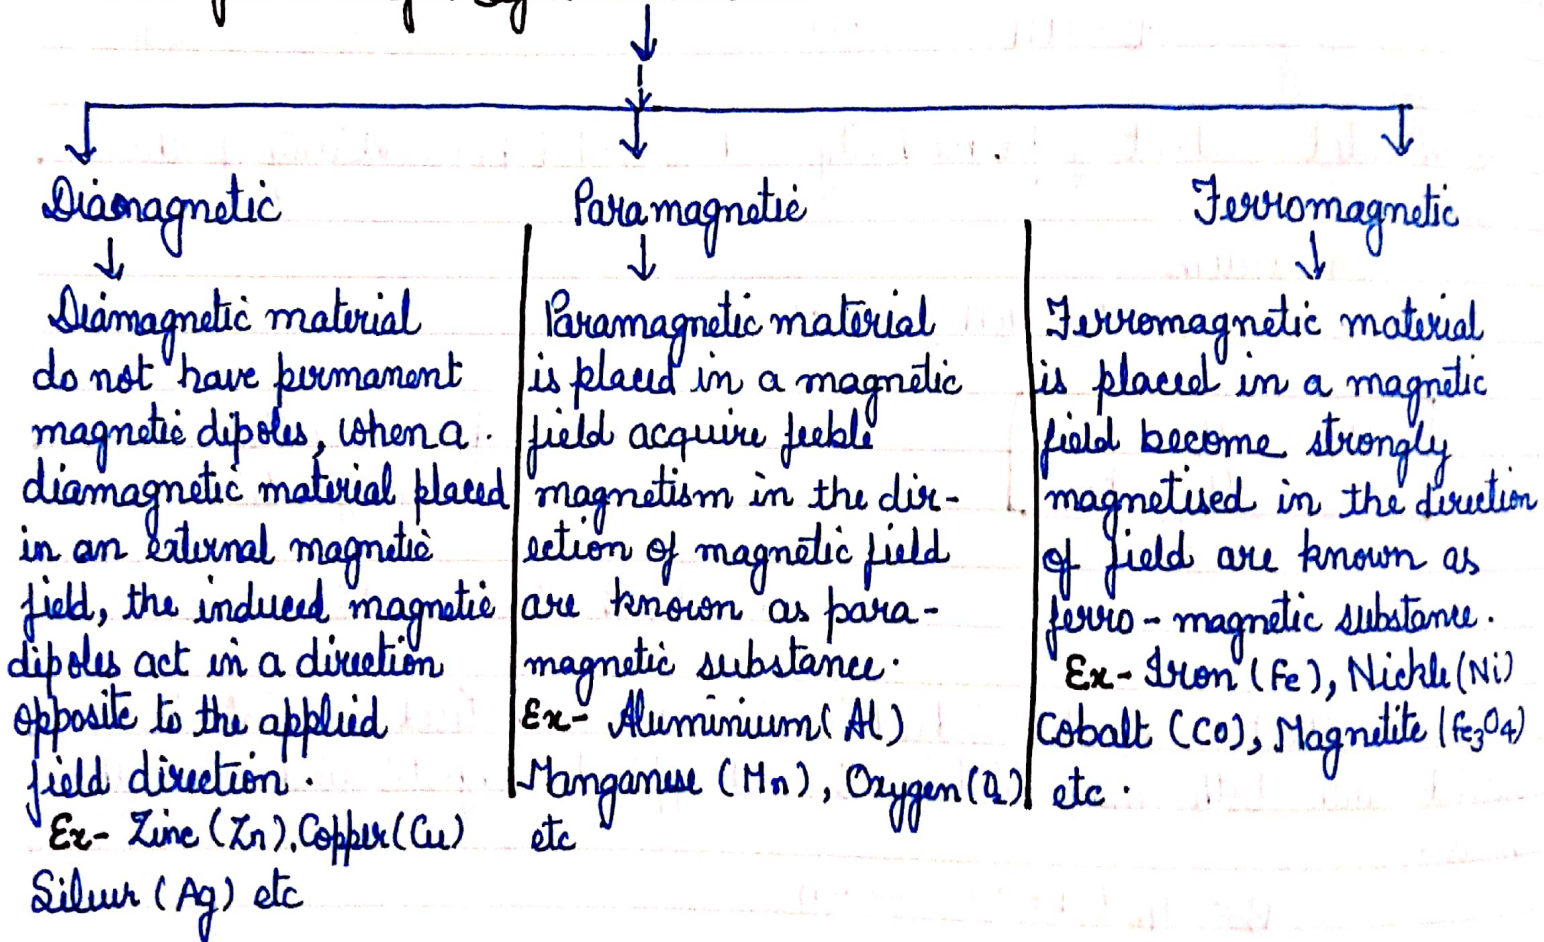 Diamagnetic
Paramagnetic
Ferromagnetic
Diamagnetic material
do not have permanent
magnetic dipoles, when a
diamagnetic material placed
in an external magnetic
field, the induced magnetic
dipoles act in a direction
opposite to the applied
field direction.
Ex- Zinc (Zn), Copper (Cu)
Silver (Ag) etc
Paramagnetic material
is placed in a magnetic
field acquire feeble
magnetism in the dir-
ection of magnetic field
are known as para-
magnetic substance.
Ex- Aluminium (Al)
Manganese (Mn), Oxygen (O2)
etc
Ferromagnetic material
is placed in a magnetic
field become strongly
magnetised in the direction
of field are known as
ferro-magnetic substance.
Ex- Iron (Fe), Nickle (Ni)
Cobalt (Co), Magnetite (Fe3O4)
etc.